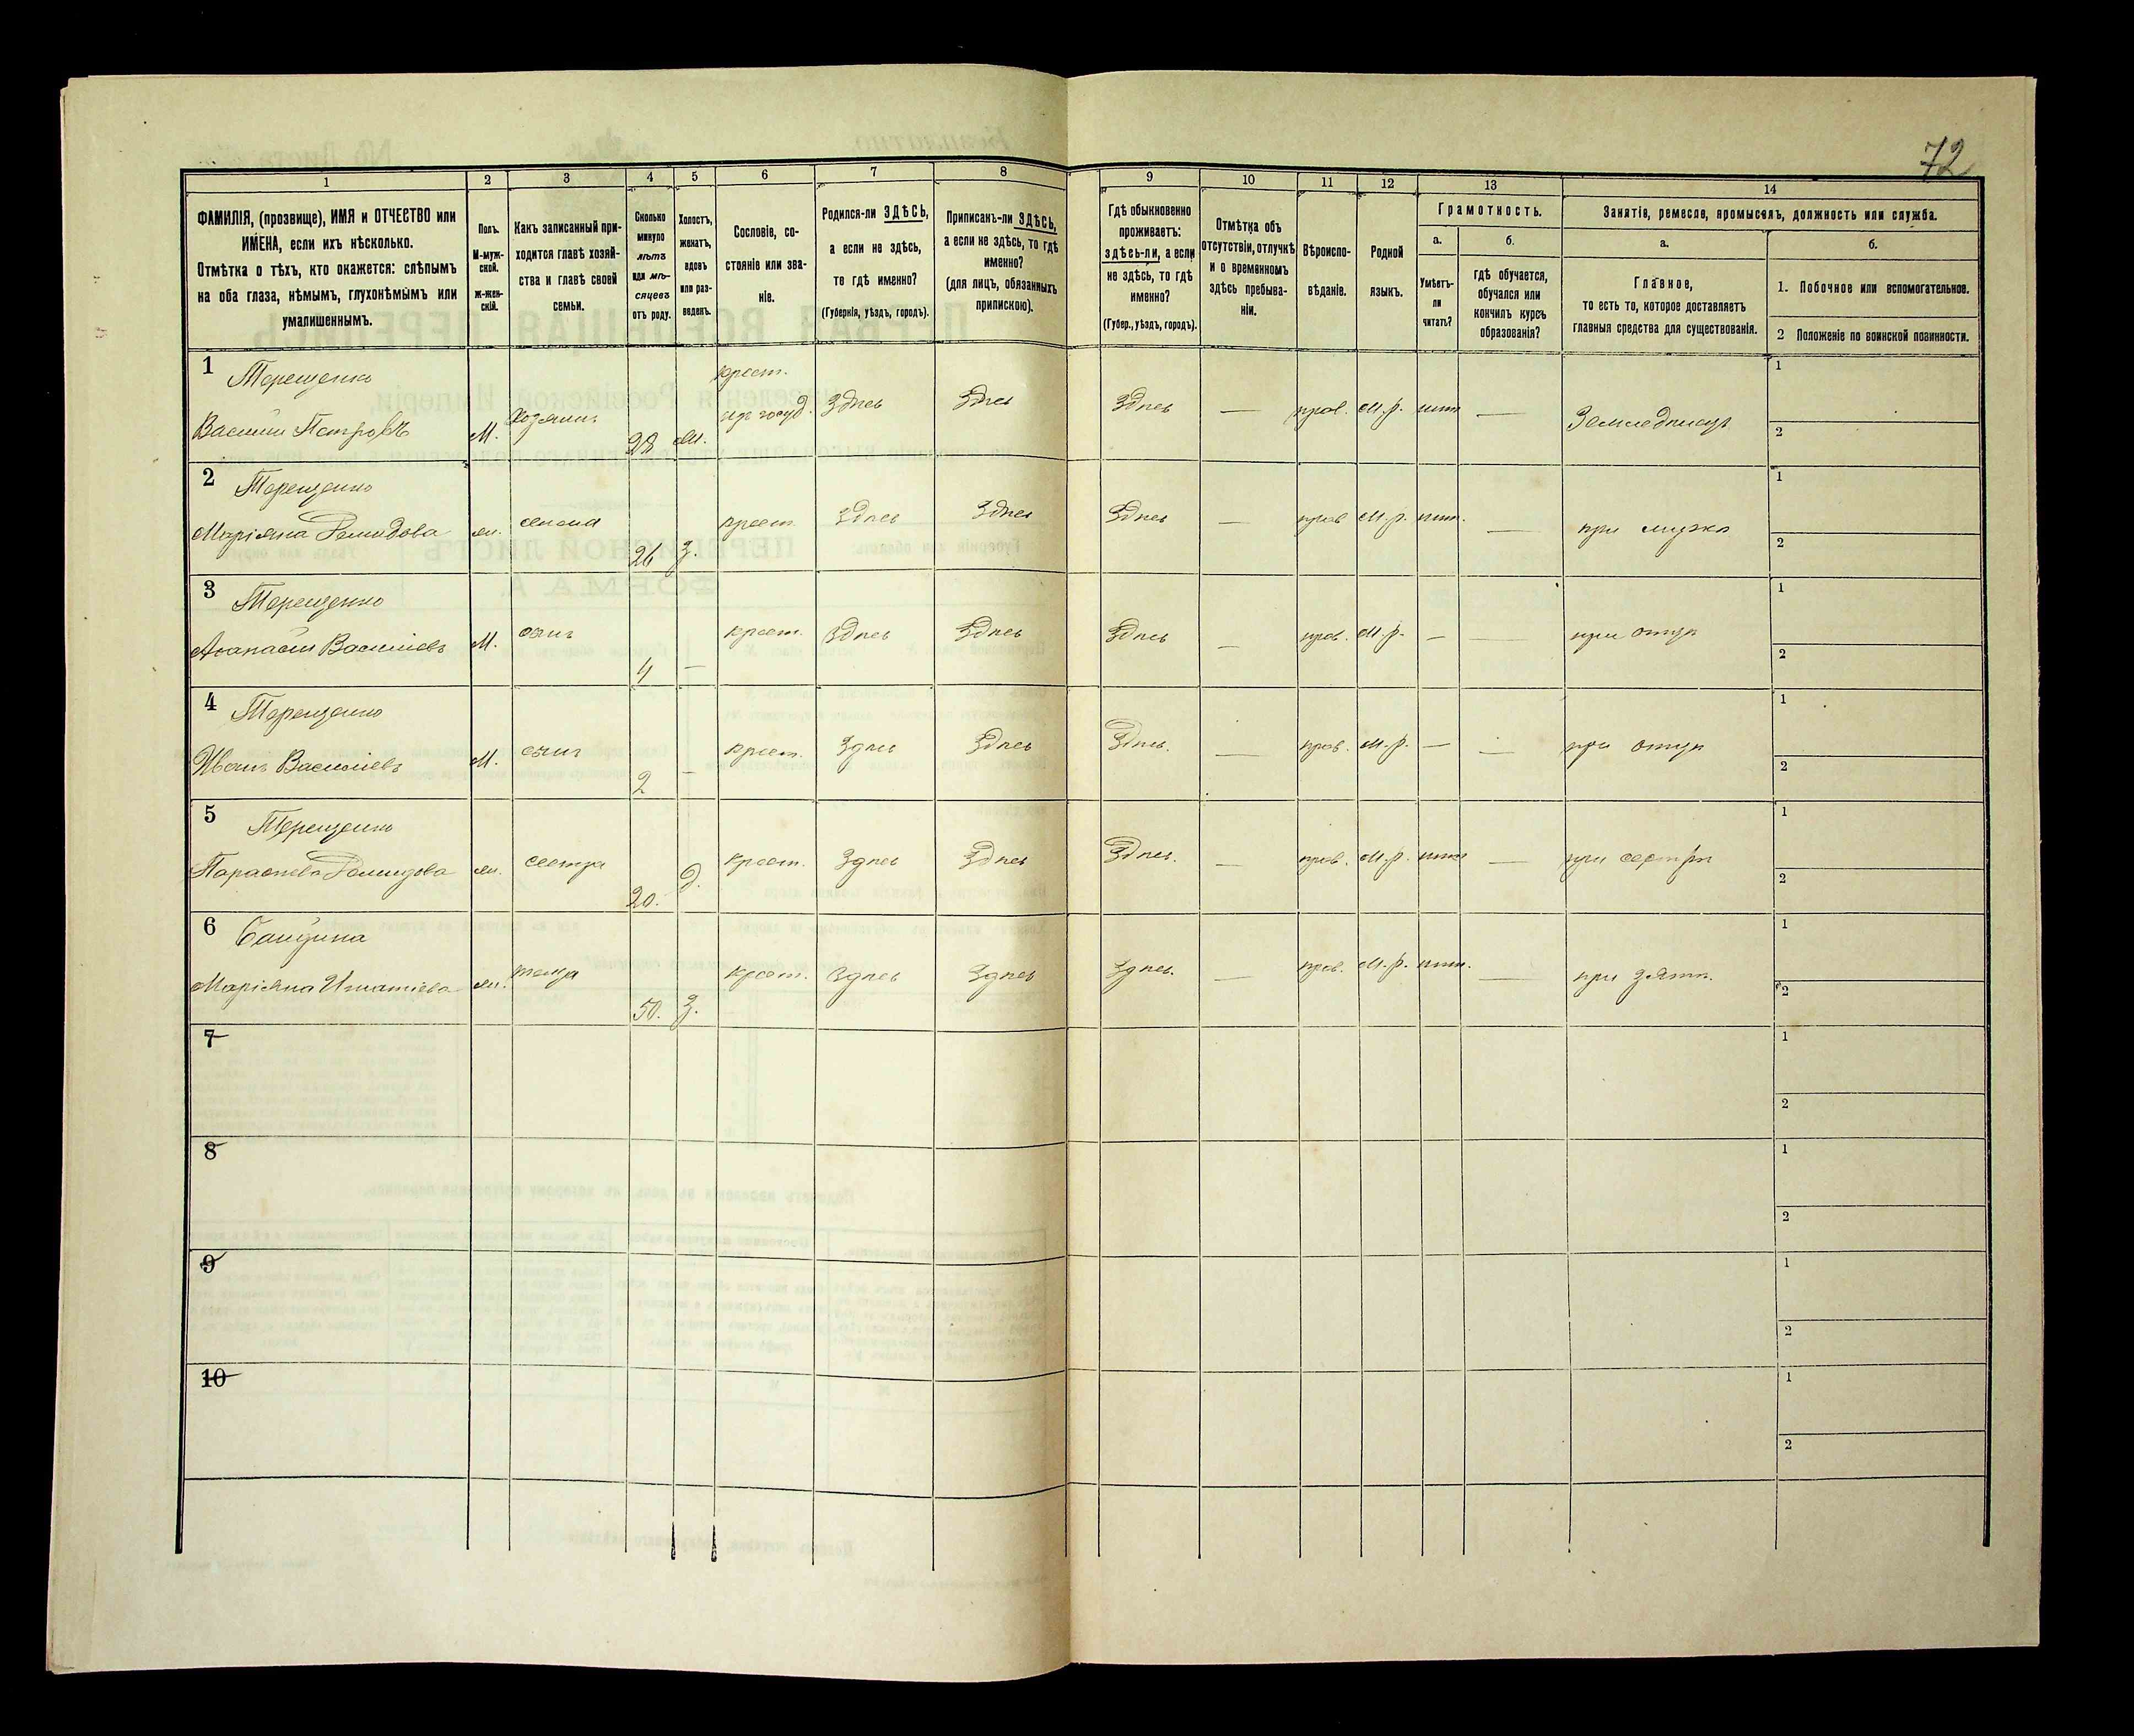 72
1 2 3 4 5 6 7 8 9 10 11 12 13 14
ФАМИЛІЯ, (прозвище), ИМЯ и ОТЧЕСТВО или
ИМЕНА, если ихъ нѣсколько.
Отмѣтка о тѣхъ, кто окажется: слѣпымъ
на оба глаза, нѣмымъ, глухонѣмымъ или
умалишеннымъ.
Полъ.
М-муж-
ской.
Ж-жен-
скій.
Какъ записанный при-
ходится главѣ хозяй-
ства и главѣ своей
семьи.
Сколько
минуло
лѣтъ
или мѣ-
сяцевъ
отъ роду.
Холостъ,
женатъ,
вдовъ
или раз-
веденъ.
Сословіе, со-
стояніе или зва-
ніе.
Родился-ли ЗДѢСЬ,
а если не здѣсь,
то гдѣ именно?
(Губернія, уѣздъ, городъ).
Приписанъ-ли ЗДѢСЬ,
а если не здѣсь, то гдѣ
именно?
(для лицъ, обязанныхъ
припискою).
Гдѣ обыкновенно
проживаетъ:
здѣсь-ли, а если
не здѣсь, то гдѣ
именно?
(Губер., уѣздъ, городъ).
Отмѣтка объ
отсутствіи, отлучкѣ
и о временномъ
здѣсь пребыва-
ніи.
Вѣроиспо-
вѣданіе.
Родной
языкъ.
Грамотность.
а.
Умѣетъ-
ли
читать?
б.
гдѣ обучается,
обучался или
кончилъ курсъ
образованія?
Занятіе, ремесло, промыселъ, должность или служба.
а.
Главное,
то есть то, которое доставляетъ
главныя средства для существованія.
б.
1. Побочное или вспомогательное.
2 Положеніе по воинской повинности.
1 Терещенко крест. 1
Василій Петровъ М. Хозяинъ 28 ж. изъ госуд. Здѣсь Здѣсь Здѣсь — прав. м.р. нѣтъ — Земледѣлецъ 2
2 Терещенко 1
Маріяна Демидова ж. жена 26 З. крест. Здѣсь Здѣсь Здѣсь — прав. м.р. нѣтъ. — при мужѣ 2
3 Терещенко 1
Аѳанасій Васильевъ М. сынъ 4 — крест. Здѣсь Здѣсь Здѣсь — прав. м.р. — — при отцѣ 2
4 Терещенко 1
Иванъ Васильевъ М. сынъ 2 — крест. Здѣсь Здѣсь Здѣсь. — прав. м.р. — — при отцѣ 2
5 Терещенко 1
Параскева Демидова ж. сестра 20. д. крест. Здѣсь Здѣсь Здѣсь. — прав. м.р. нѣтъ — при сестрѣ 2
6 1
Маріяна Игнатіева ж. теща 50. З. крест. Здѣсь Здѣсь Здѣсь. — прав. м.р. нѣтъ. — при зятѣ. 2
7 1
2
8 1
2
9 1
2
10 1
2